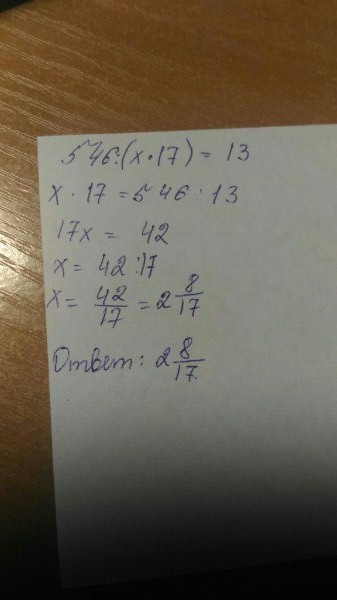 546:(x·17) = 13
x · 17 = 546 : 13
17x = 42
x = 42:17
x = 42/17 = 2 8/17
Ответ: 2 8/17.